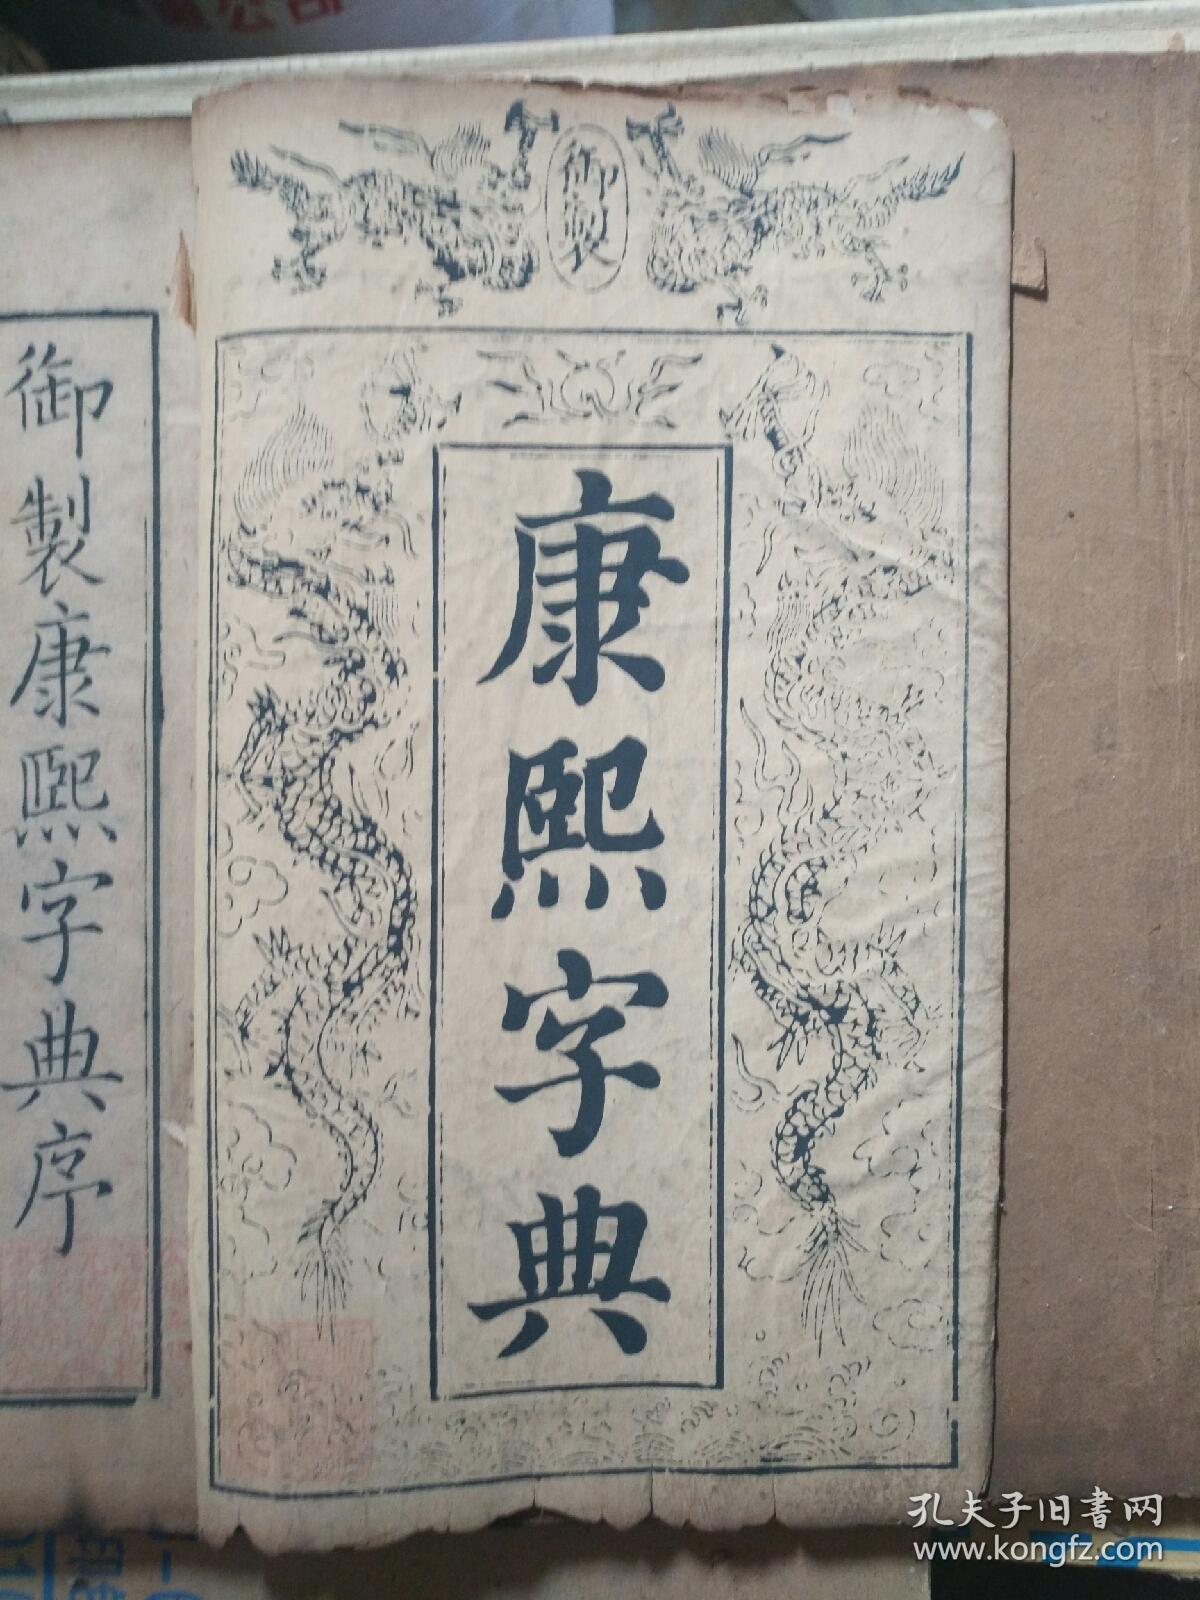 御製
康熙字典
御製康熙字典序
孔夫子旧書网
www.kongfz.com
公司